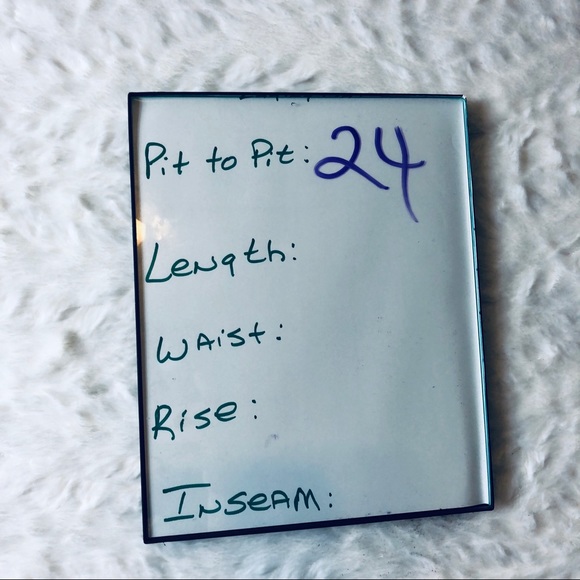 Pit to Pit: 24
Length:
Waist:
Rise:
Inseam: